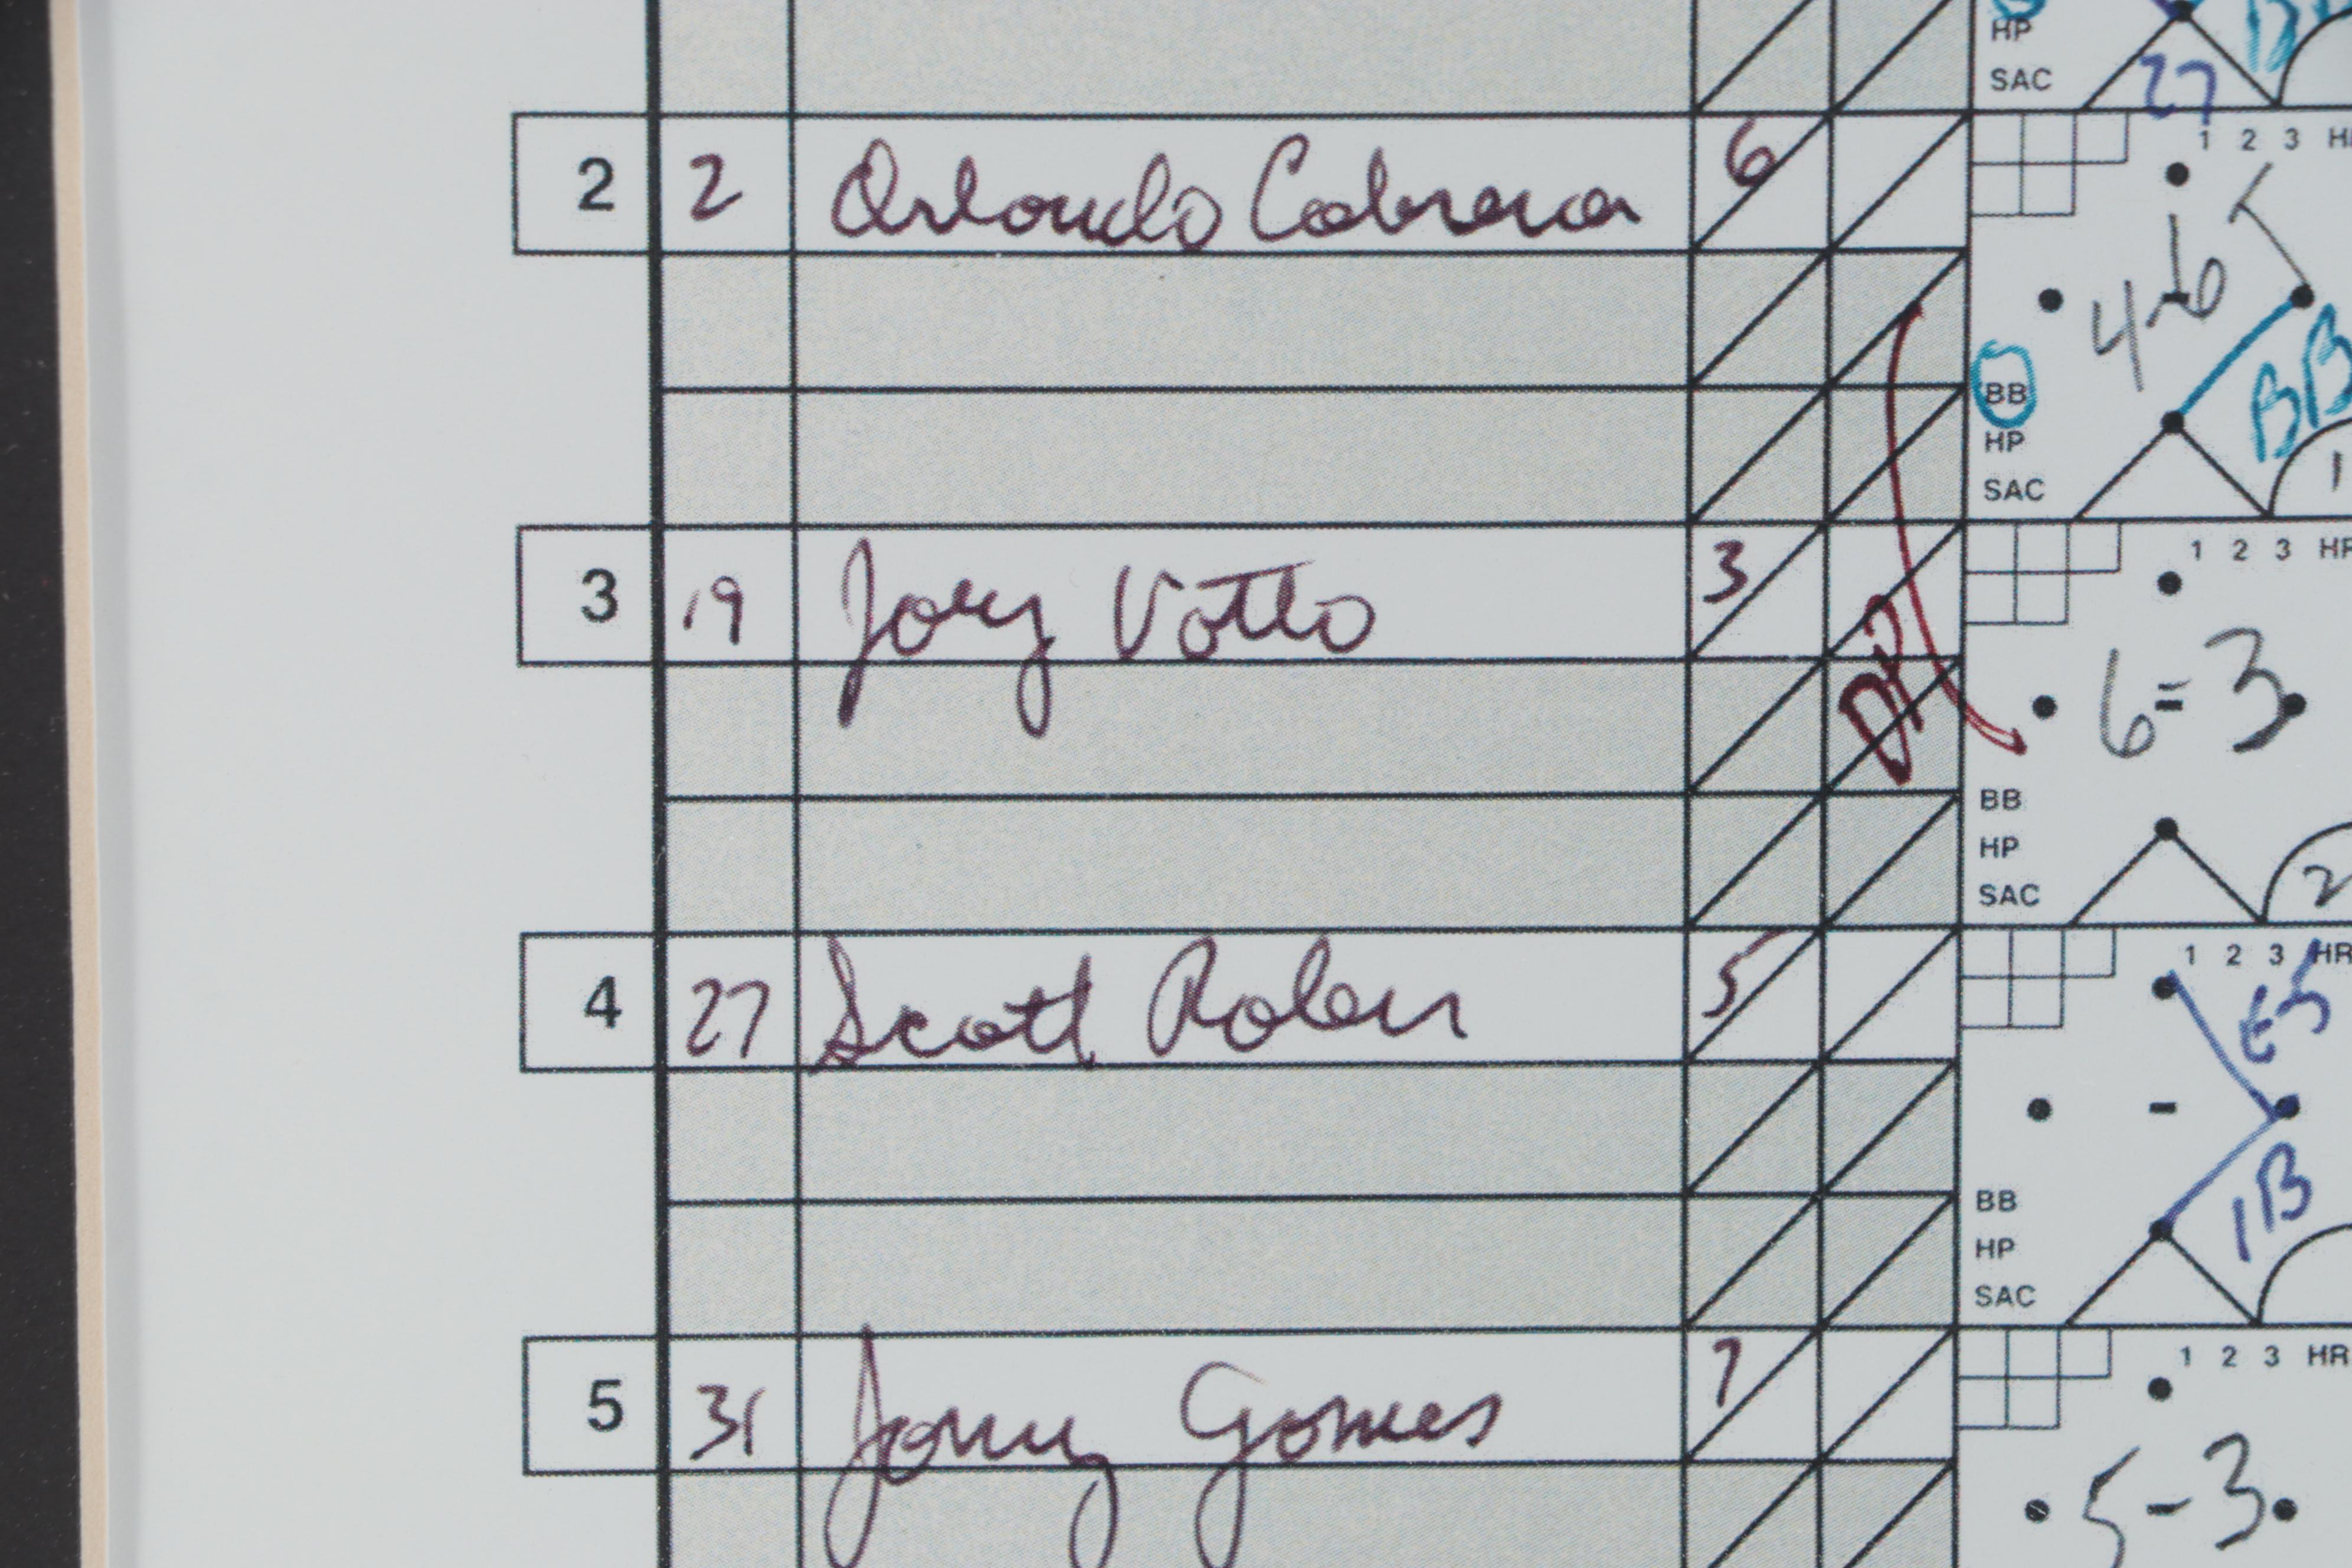 HP
SAC 27
2 2 Orlando Cabrera 6 1 2 3
4-6
BB BB
HP
SAC 1
3 19 Joey Votto 3 1 2 3 HR
DP 6=3
BB
HP
SAC 2
4 27 Scott Rolen 5 1 2 3 HR
E-5
-
BB 1B
HP
SAC
5 31 Jonny Gomes 7 1 2 3 HR
5-3